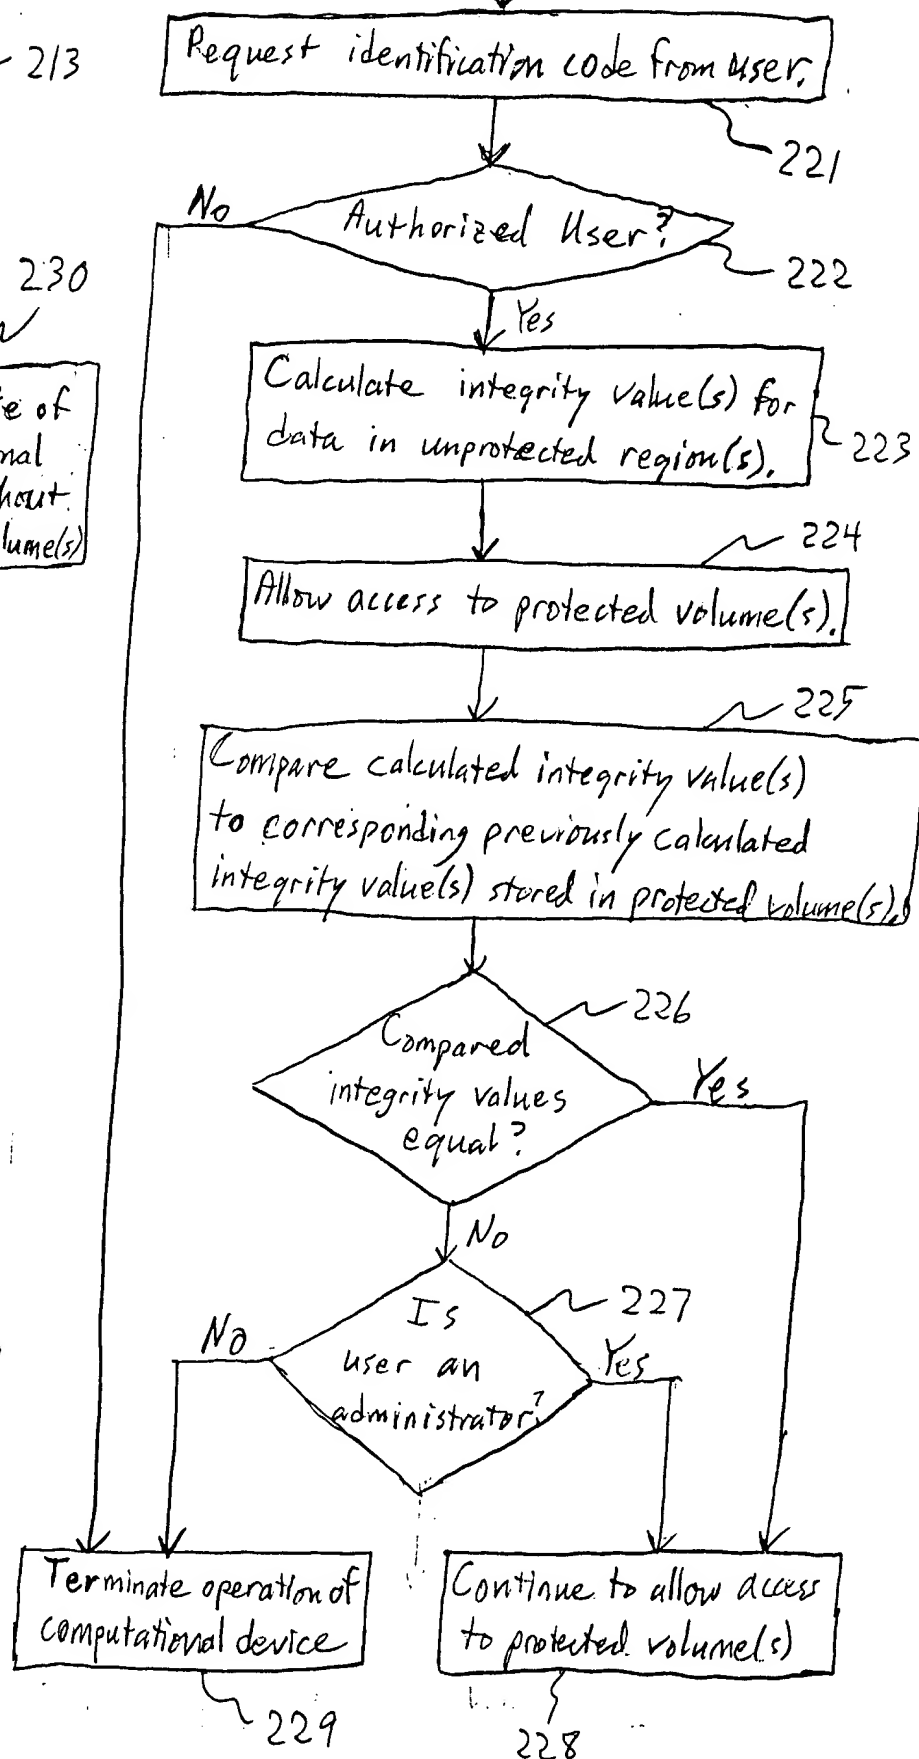 213
Request identification code from user.
221
No
Authorized User?
222
230
Yes
of
Calculate integrity value(s) for
data in unprotected region(s).
223
224
Allow access to protected volume(s).
225
Compare calculated integrity value(s)
to corresponding previously calculated
integrity value(s) stored in protected volume(s).
226
Compared
integrity values
equal?
Yes
No
227
Is
user an
administrator?
No
Yes
Terminate operation of
computational device
229
Continue to allow access
to protected volume(s)
228